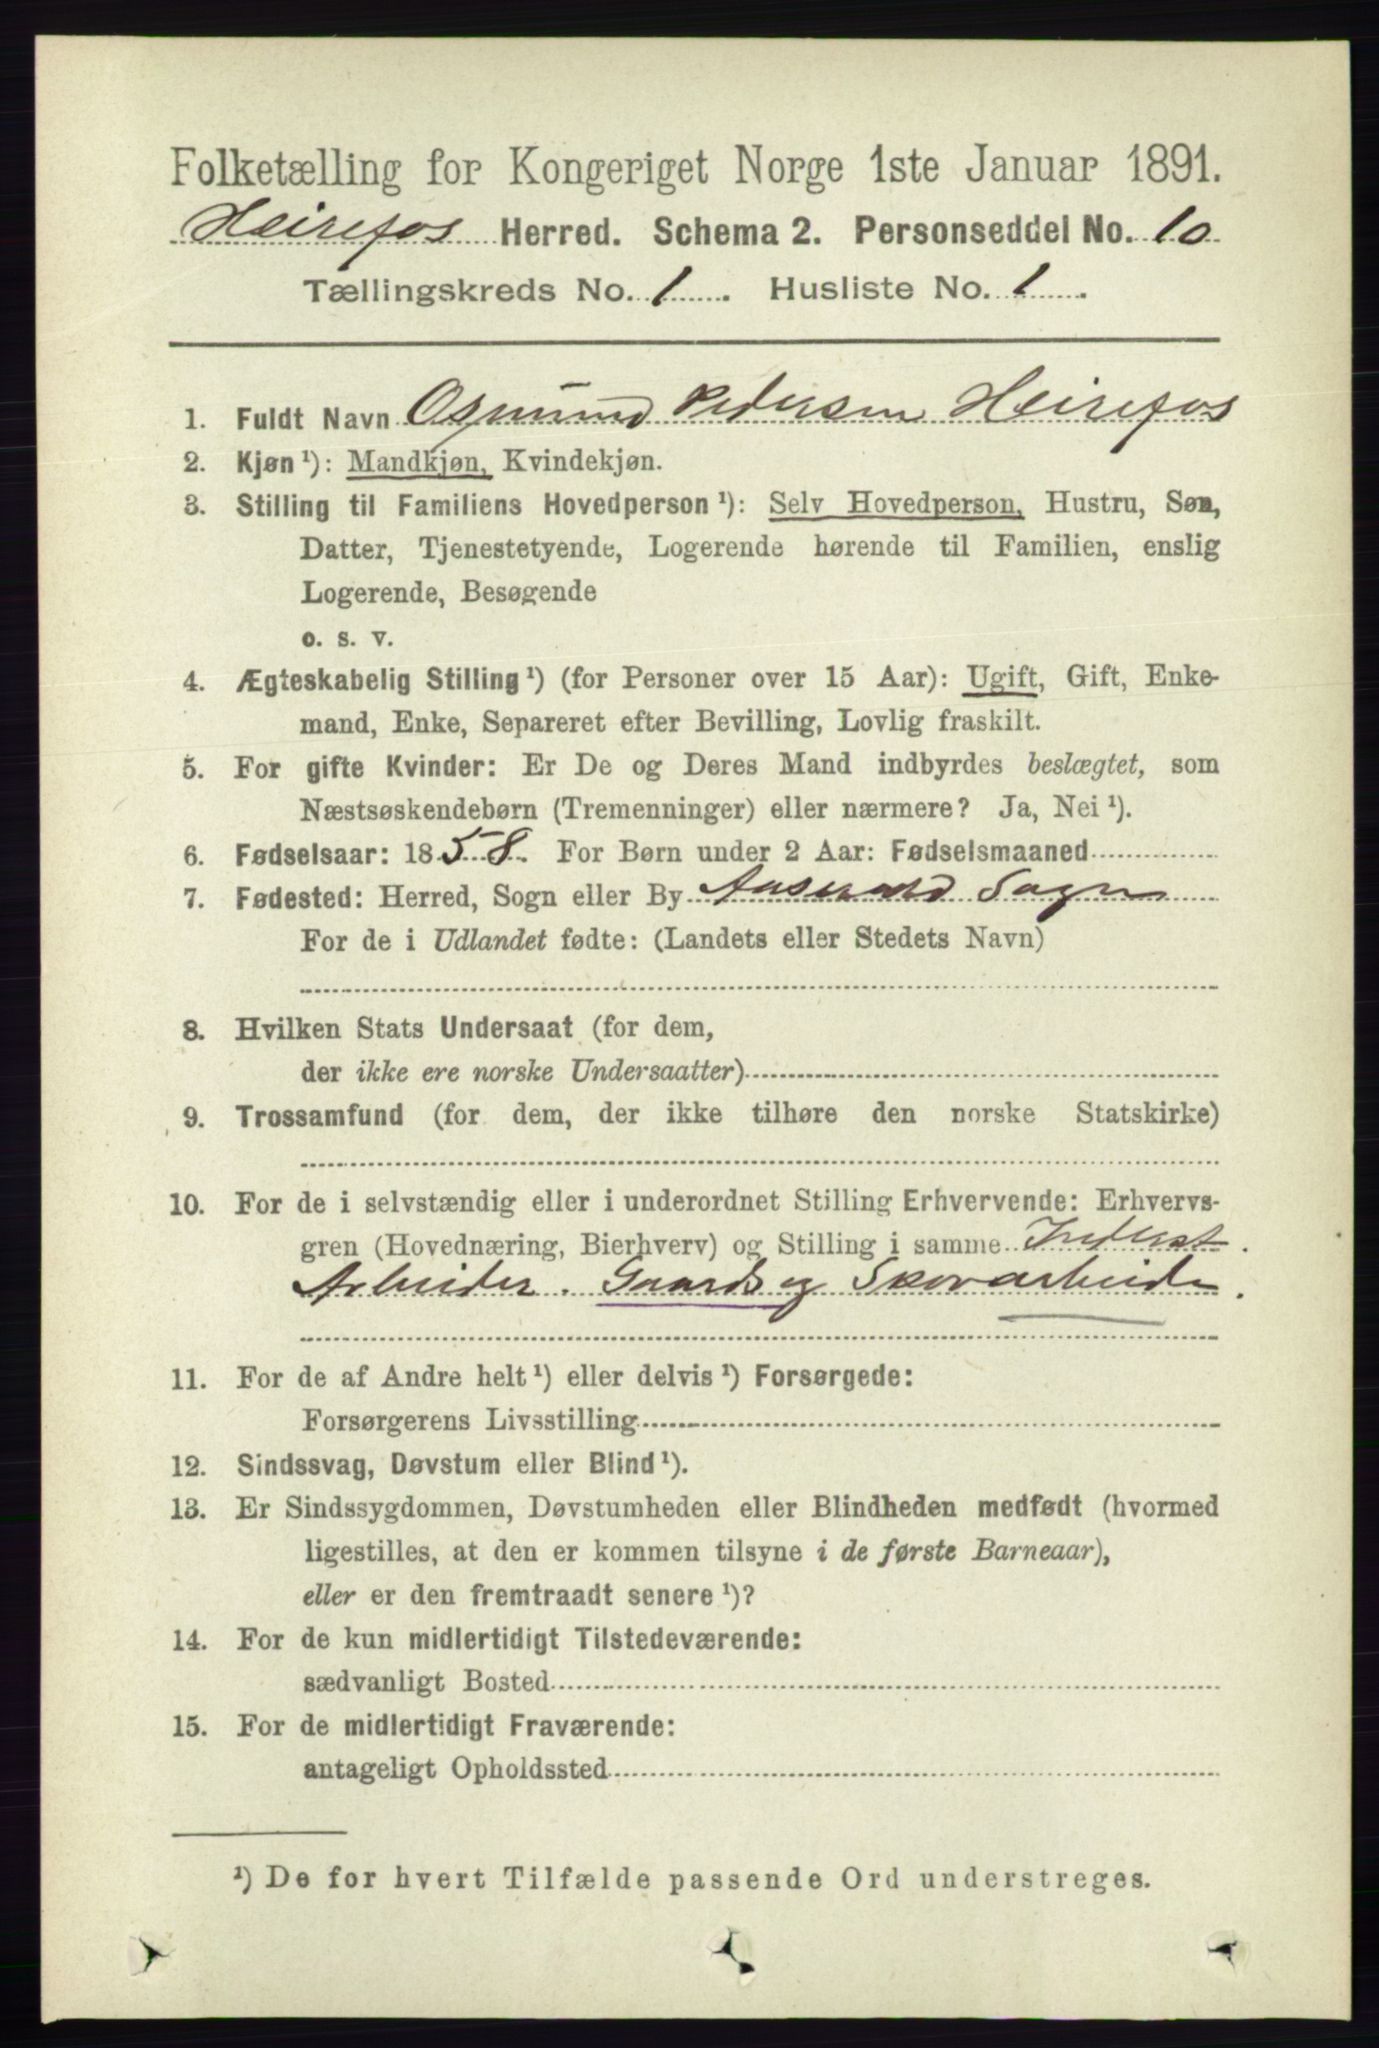 Folketælling for Kongeriget Norge 1ste Januar 1891.
Heirefos Herred. Schema 2. Personseddel No. 10
Tællingskreds No. 1. Husliste No. 1.
1. Fuldt Navn Osmund Pedersen Heirefos
2. Kjøn ¹): Mandkjøn, Kvindekjøn.
3. Stilling til Familiens Hovedperson ¹): Selv Hovedperson, Hustru, Søn,
Datter, Tjenestetyende, Logerende hørende til Familien, enslig
Logerende, Besøgende
o. s. v.
4. Ægteskabelig Stilling ¹) (for Personer over 15 Aar): Ugift, Gift, Enke-
mand, Enke, Separeret efter Bevilling, Lovlig fraskilt.
5. For gifte Kvinder: Er De og Deres Mand indbyrdes beslægtet, som
Næstsøskendebørn (Tremenninger) eller nærmere? Ja, Nei ¹).
6. Fødselsaar: 1858. For Børn under 2 Aar: Fødselsmaaned
7. Fødested: Herred, Sogn eller By Aaserald Sogn
For de i Udlandet fødte: (Landets eller Stedets Navn)
8. Hvilken Stats Undersaat (for dem,
der ikke ere norske Undersaatter)
9. Trossamfund (for dem, der ikke tilhøre den norske Statskirke)
10. For de i selvstændig eller i underordnet Stilling Erhvervende: Erhvervs-
gren (Hovednæring, Bierhverv) og Stilling i samme Inderst.
Arbeider. Gaards og Skovarbeide.
11. For de af Andre helt ¹) eller delvis ¹) Forsørgede:
Forsørgerens Livsstilling
12. Sindssvag, Døvstum eller Blind ¹).
13. Er Sindssygdommen, Døvstumheden eller Blindheden medfødt (hvormed
ligestilles, at den er kommen tilsyne i de første Barneaar),
eller er den fremtraadt senere ¹)?
14. For de kun midlertidigt Tilstedeværende:
sædvanligt Bosted
15. For de midlertidigt Fraværende:
antageligt Opholdssted
¹) De for hvert Tilfælde passende Ord understreges.